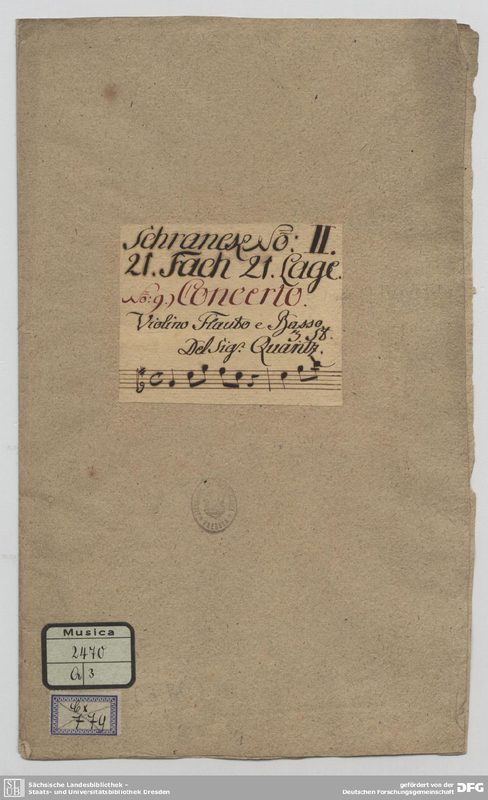 Schranck No: II.
21. Fach 21. Lage.
No: 9.) Concerto.
Violino Flauto e Basso
3 St.
Del Sig.r Quantz.
Musica
2470
O 3
Cx
774
Sächsische Landesbibliothek –
Staats- und Universitätsbibliothek Dresden
gefördert von der
Deutschen Forschungsgemeinschaft DFG
SLUB